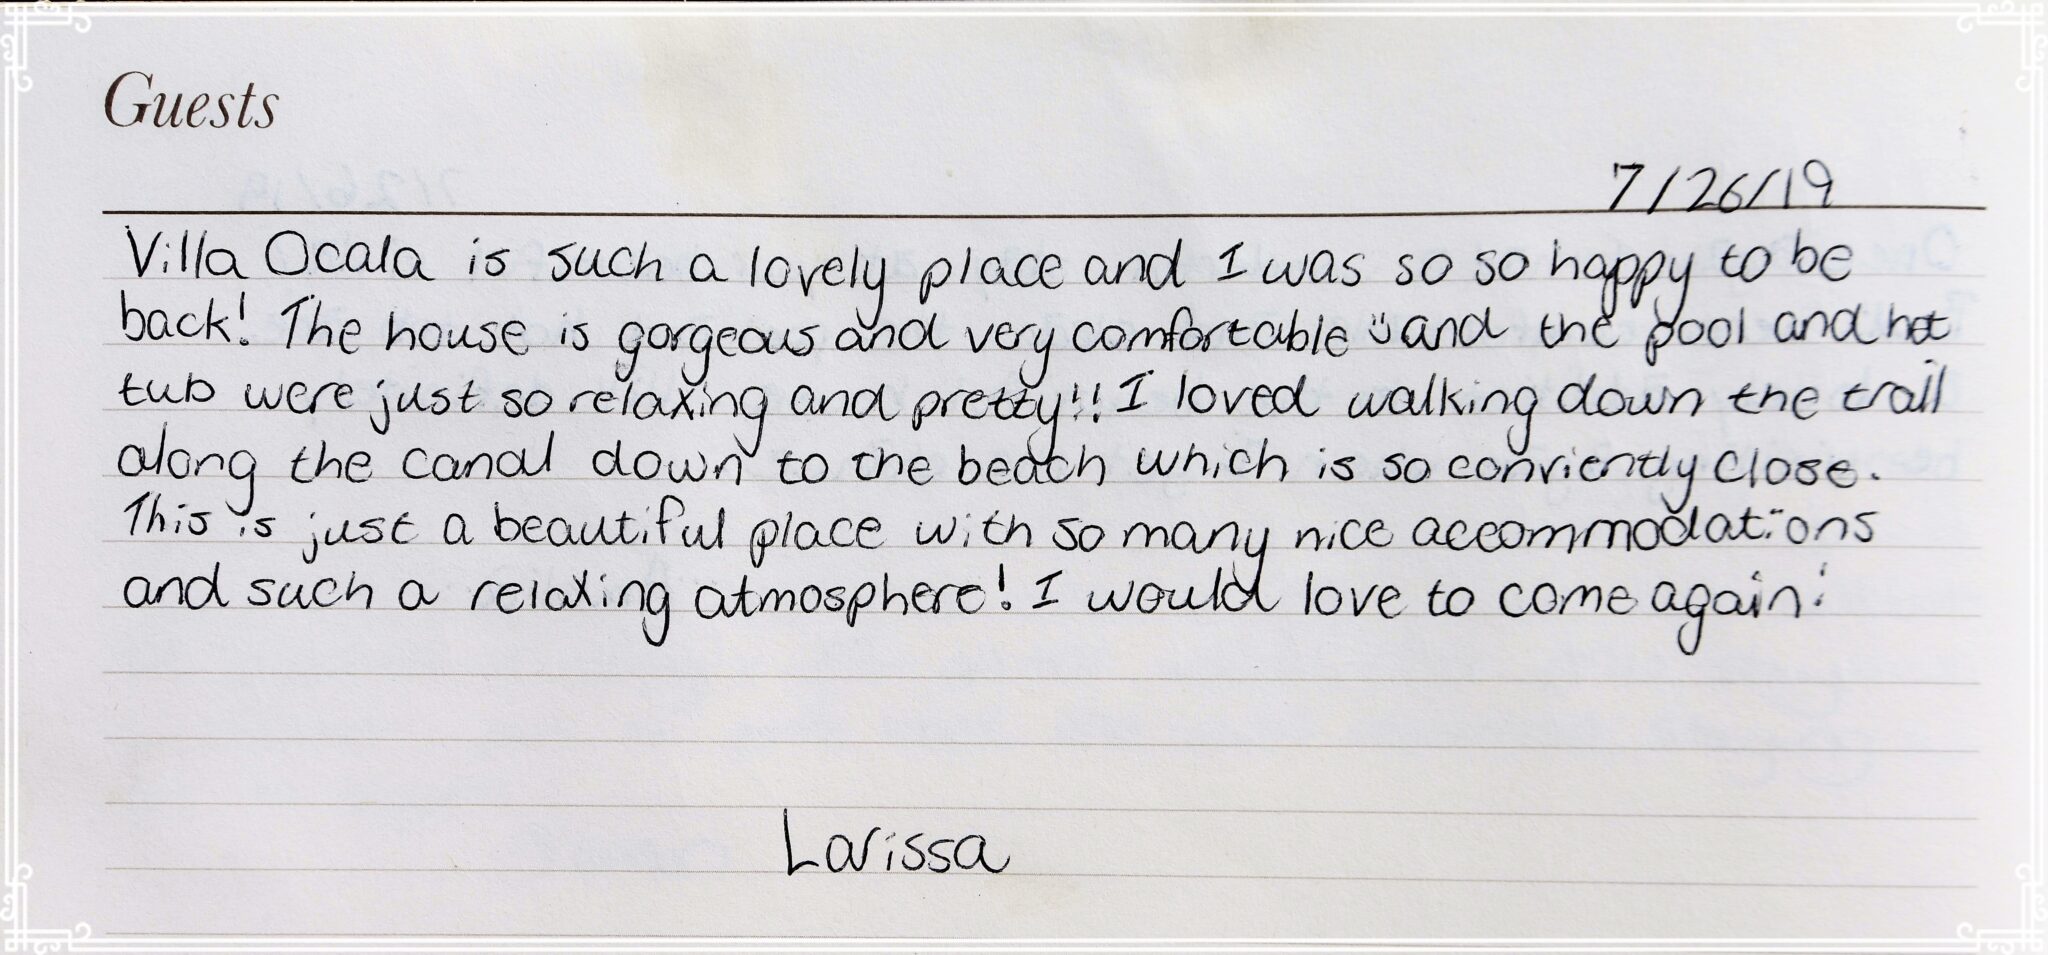 Guests
7/26/19
Villa Ocala is such a lovely place and I was so so happy to be
back! The house is gorgeous and very comfortable ü and the pool and hot
tub were just so relaxing and pretty!! I loved walking down the trail
along the canal down to the beach which is so conviently close.
This is just a beautiful place with so many nice accommodations
and such a relaxing atmosphere! I would love to come again!
Larissa